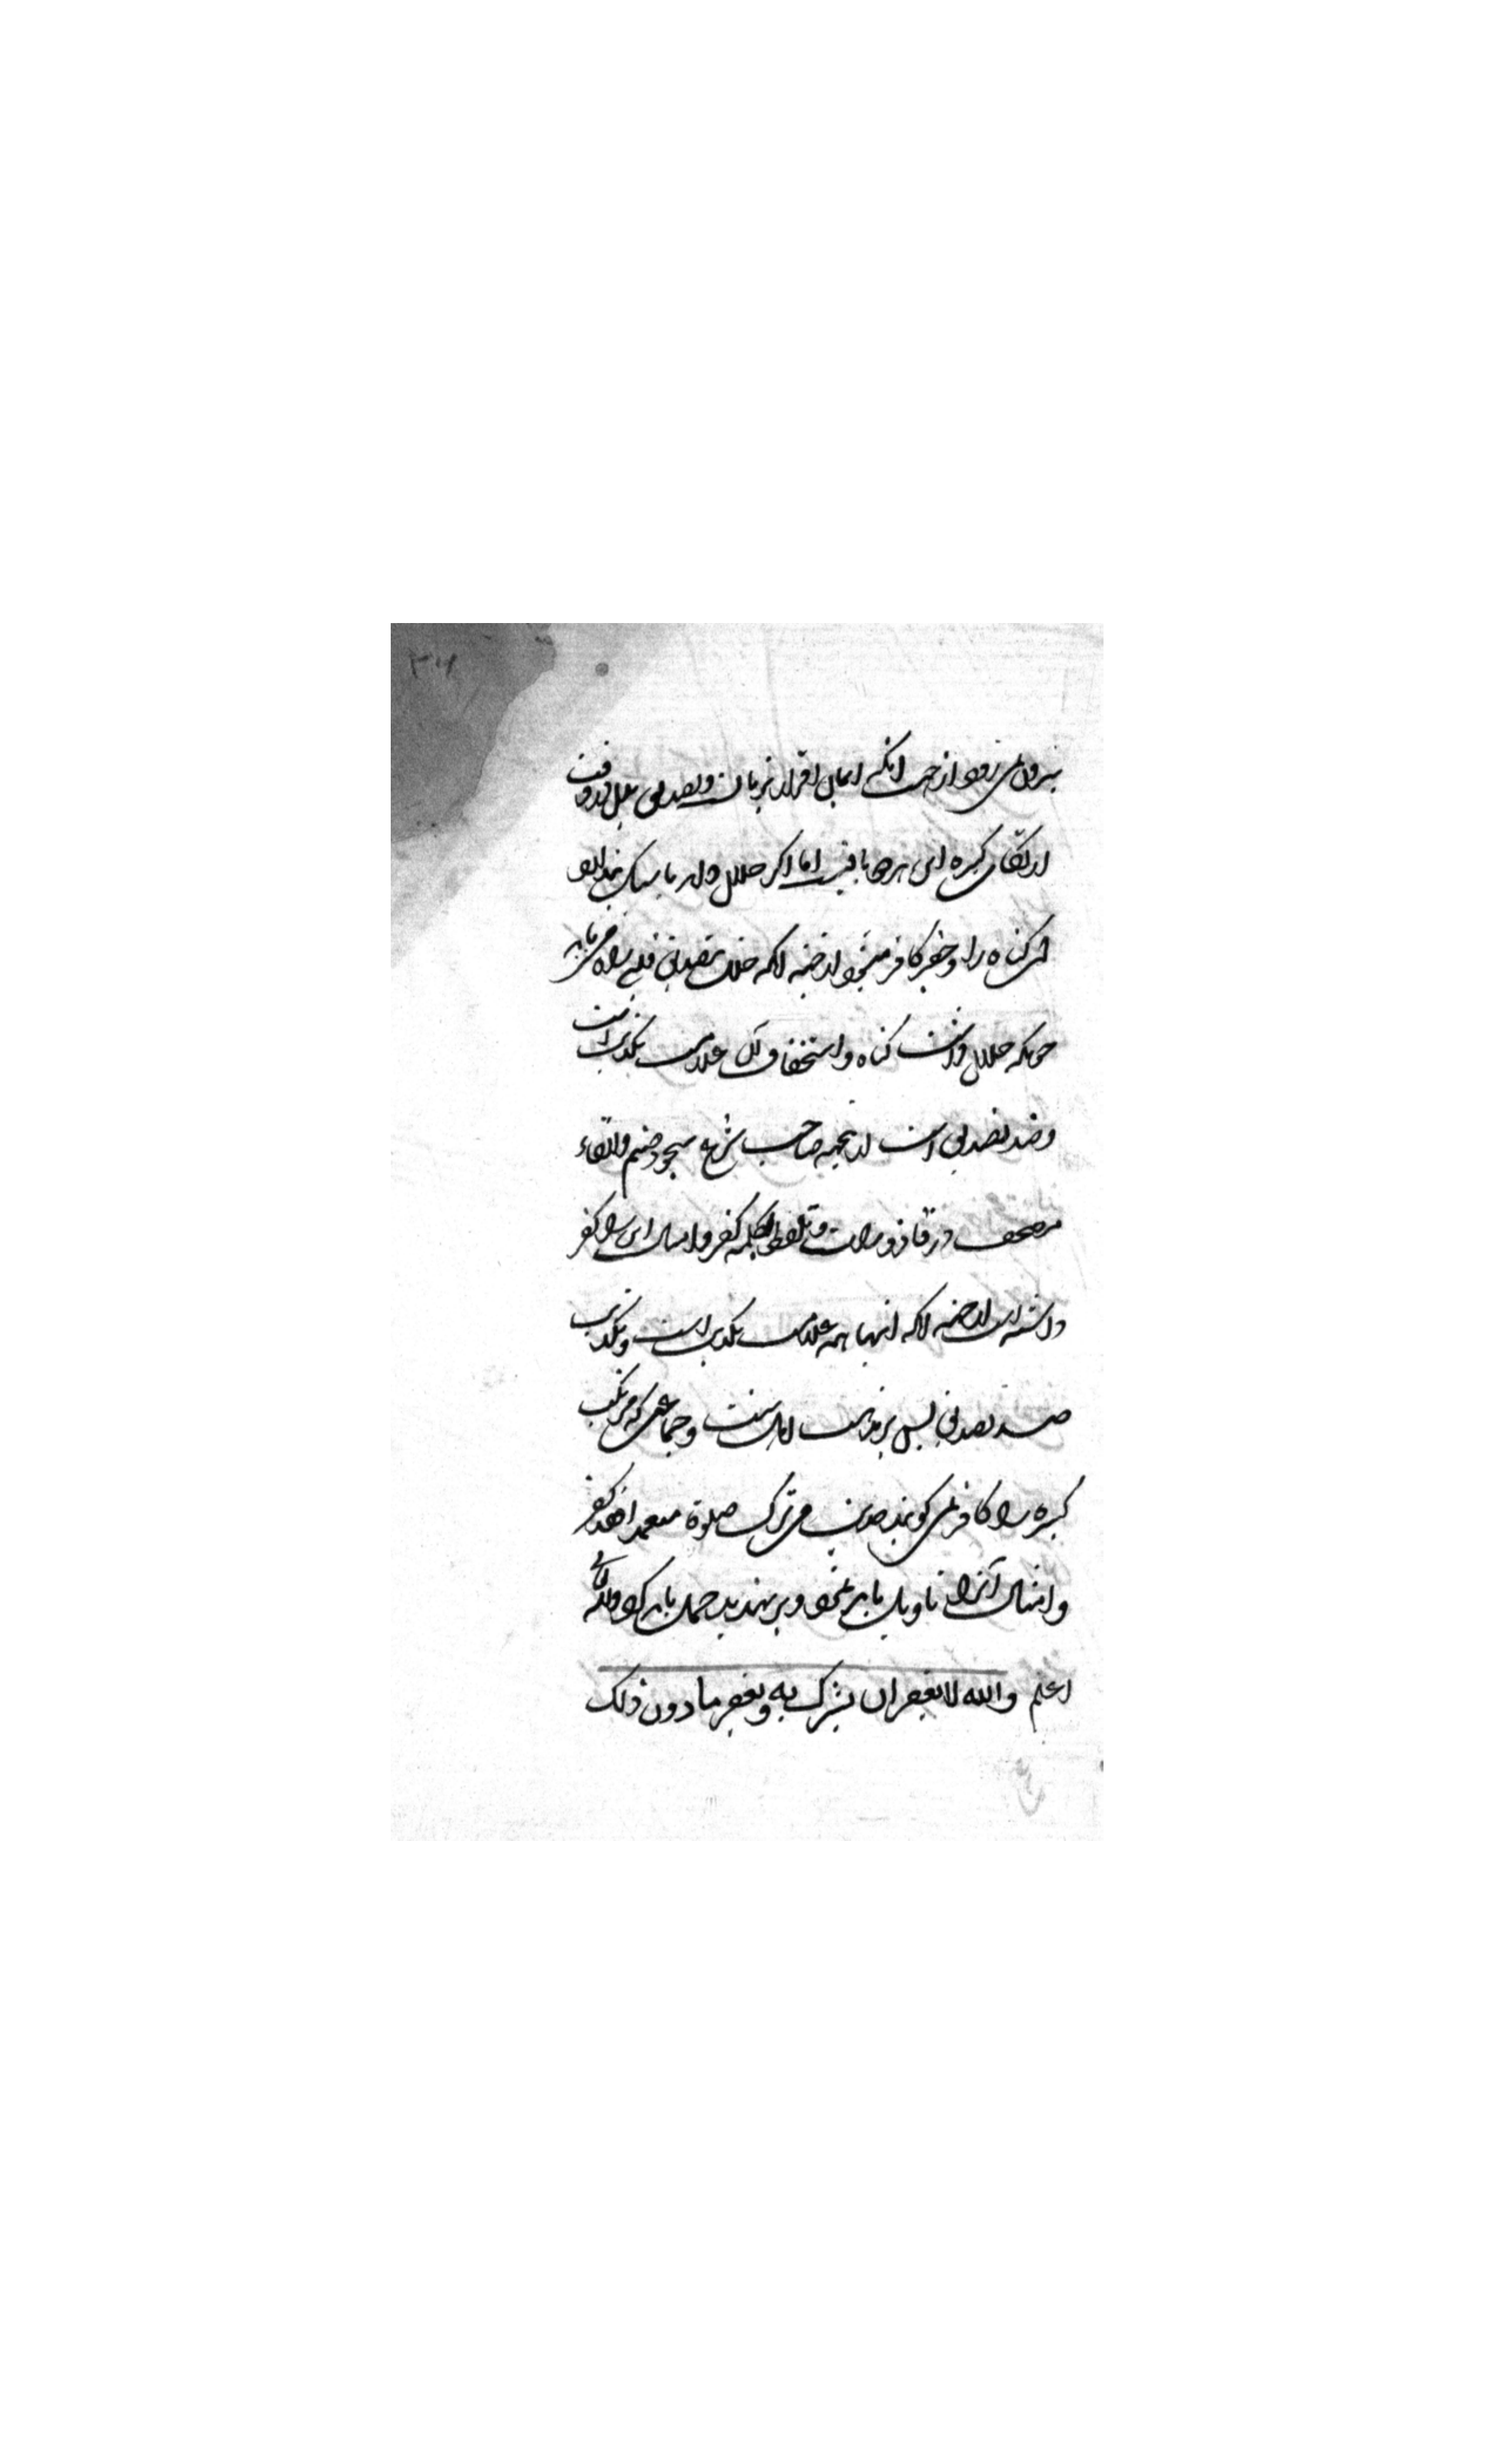 ۳۶
بیرون نمی رود از جهت آنکه ایمان اقرار بزبان و تصدیق بدل و در وقت
ارتکاب کبیره این هر دو باقیست اما اگر حلال دارد یا سبک پندارد
این گناه را و حقیر کافر میشود از جهة آنکه خلل بتصدیق قلبی راه می یابد
چونکه حلال داشتن گناه و استخفاف آن علامت تکذیب است
و ضد تصدیق است از جهة صاحب شرع سجود صنم و القاء
مصحف در قاذورات و تلفظ بکلمه کفر و امثال این را کفر
داشته است از جهة آنکه اینها همه علامت تکذیب است و تکذیب
ضد تصدیق پس بر مذهب اهل سنت و جماعت که مرتکب
کبیره را کافر نمی گویند حدیث من ترک صلوة متعمدا فقد کفر
و امثال آنرا تاویل باید نمود و بر تهدید حمل باید کرد والله
اعلم والله لا یغفر ان یشرک به و یغفر ما دون ذلک